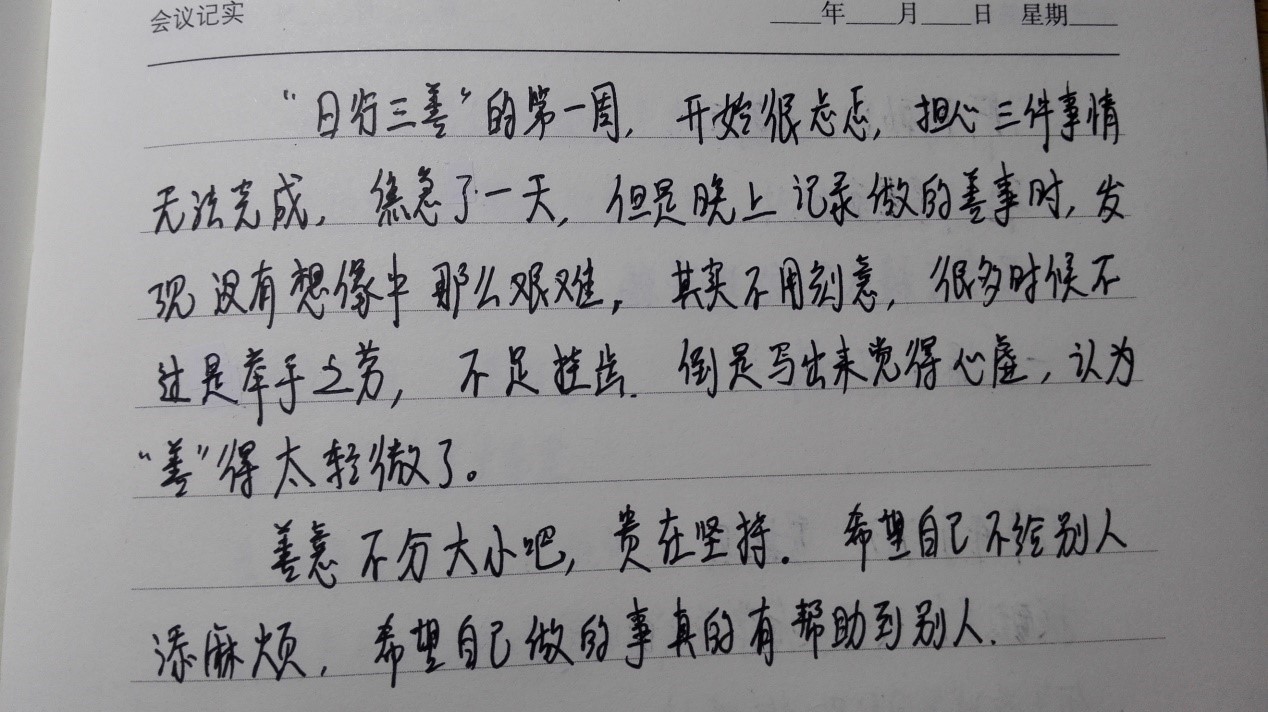 会议记实 ____年____月____日 星期____
“日行三善”的第一周，开始很忐忑，担心三件事情
无法完成，焦急了一天，但是晚上记录做的善事时，发
现没有想像中那么艰难，其实不用刻意，很多时候不
过是举手之劳，不足挂齿．倒是写出来觉得心虚，认为
“善”得太轻微了。
善意不分大小吧，贵在坚持。希望自己不给别人
添麻烦，希望自己做的事真的有帮助到别人．